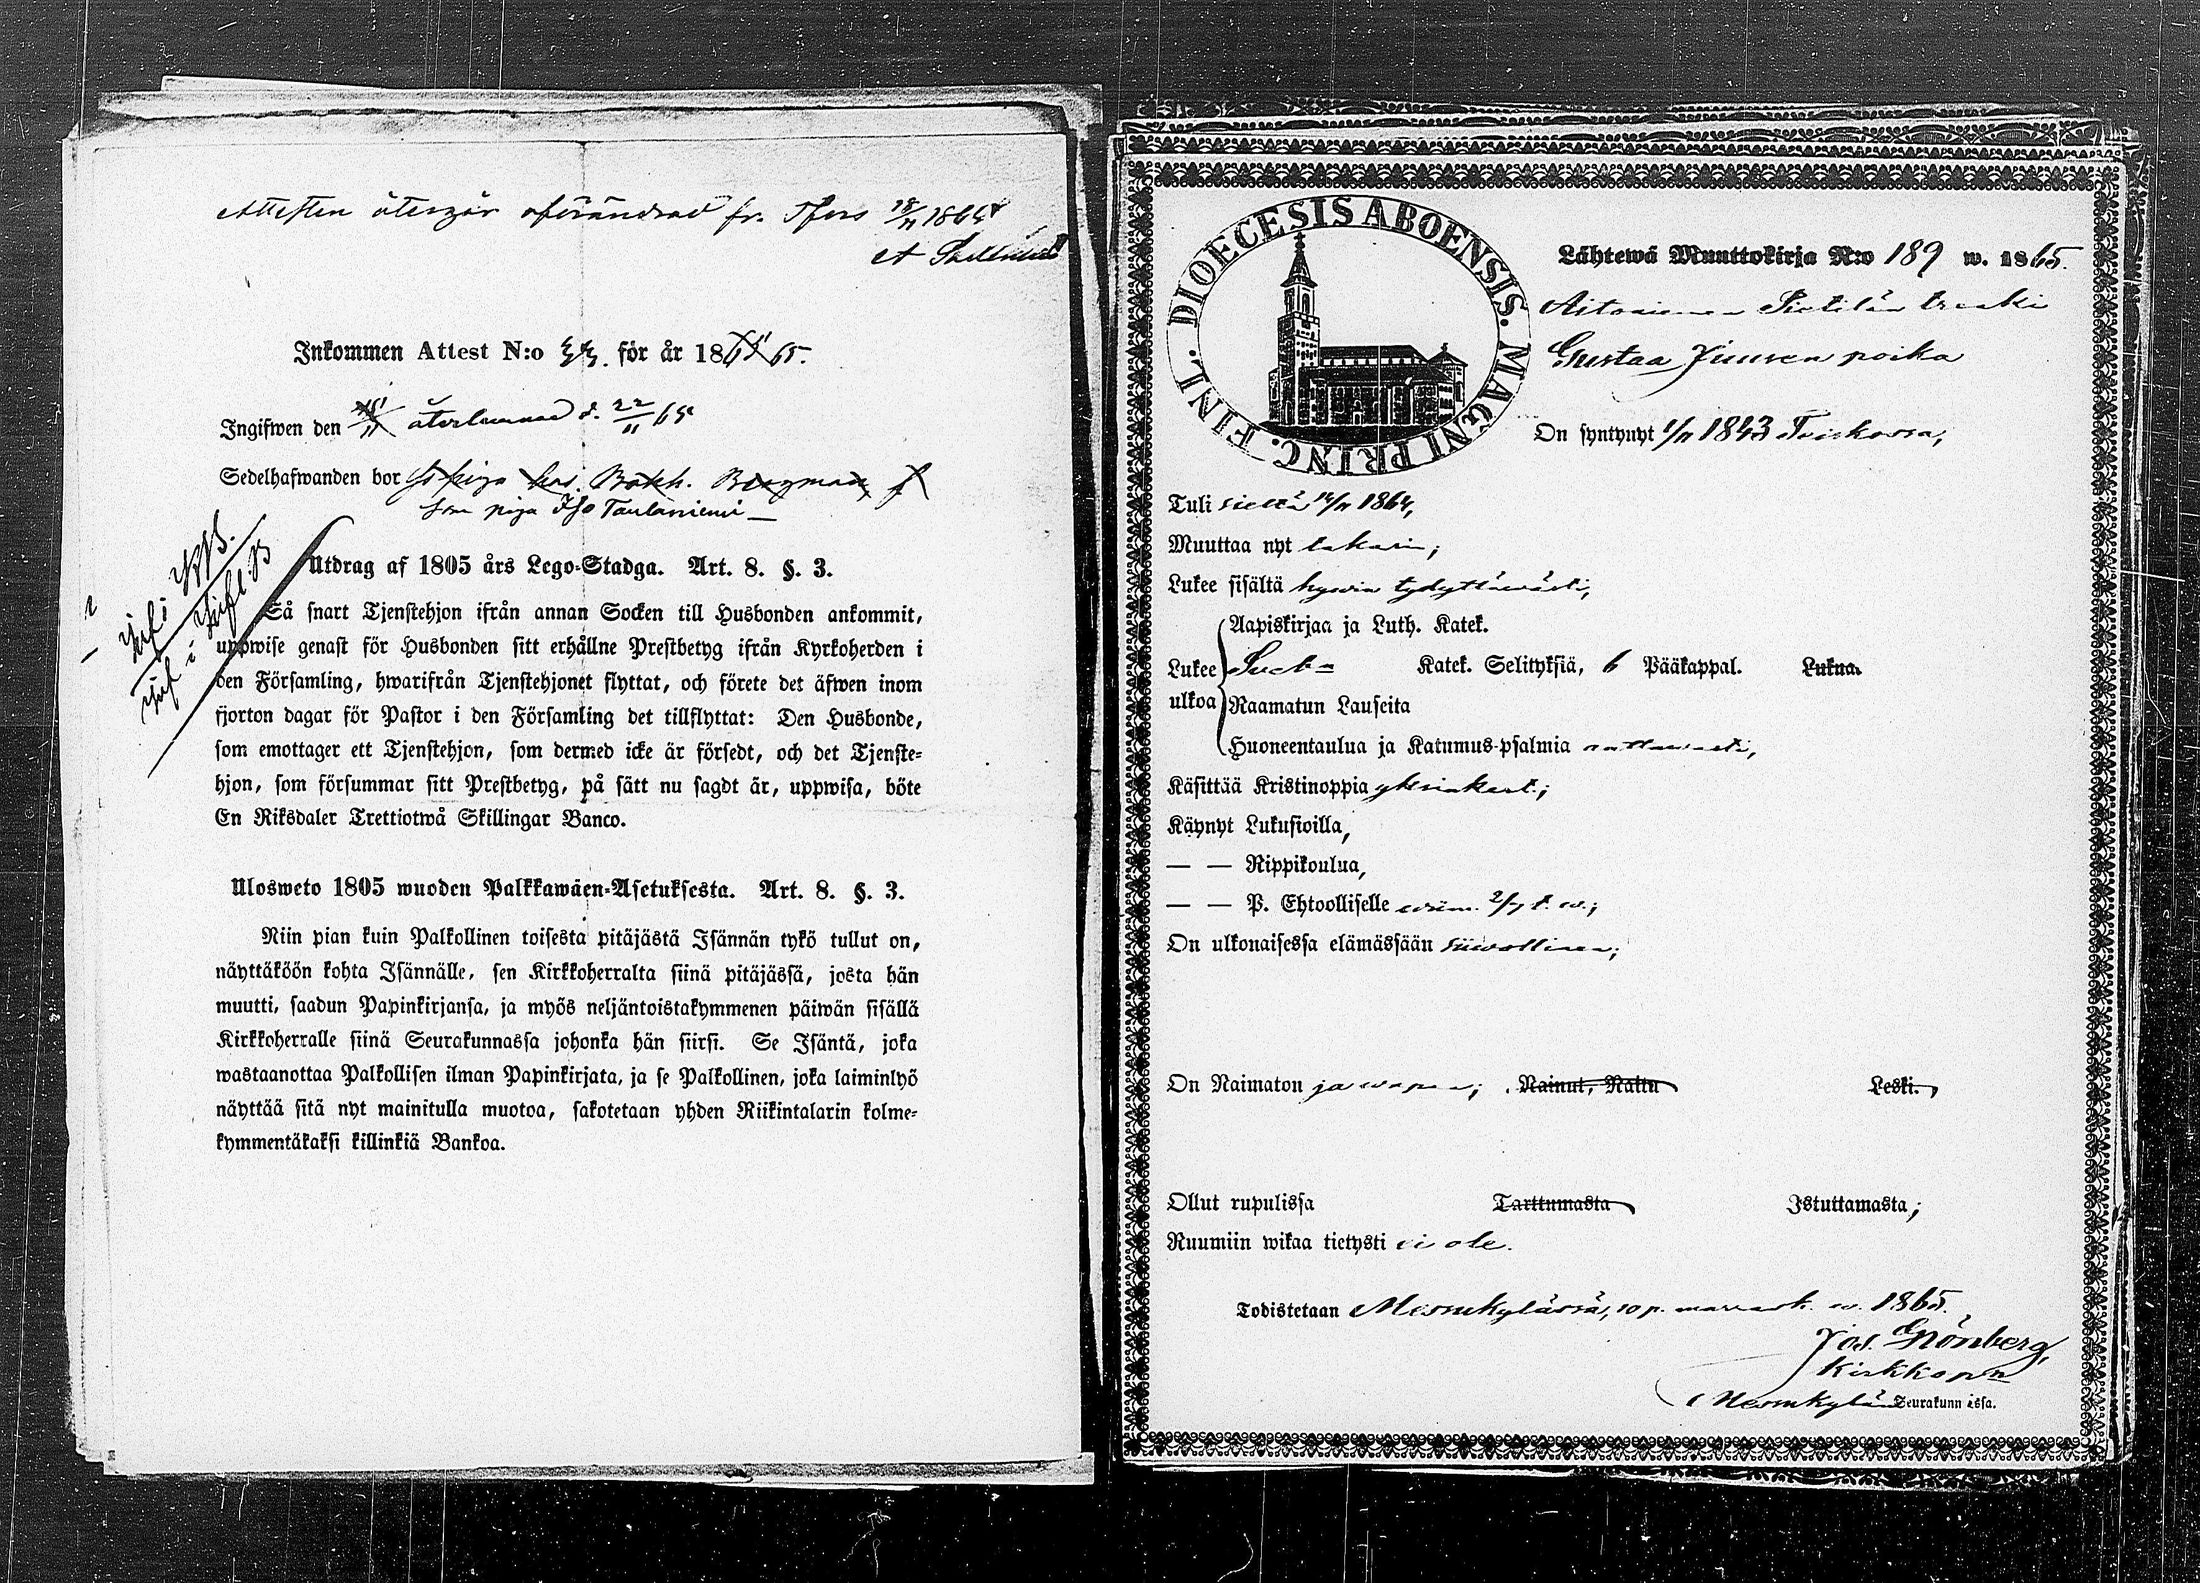 Attesten återgår oförändrad fr. Tfors 18/11 1865
Inkommen Attest N:o för år 18 65.
Ingifwen den återlemnad d. 22/11 65
Sedelhafwanden bor Bergman
som piga Iso Taulaniemi
Utdrag af 1805 års Lego-Stadga. Art. 8. §. 3.
Så snart Tjenstehjon ifrån annan Socken till Husbonden ankommit,
uppwise genast för Husbonden sitt erhållne Prestbetyg ifrån Kyrkoherden i
den Församling, hwarifrån Tjenstehjonet flyttat, och förete det äfwen inom
fjorton dagar för Pastor i den Församling det tillflyttat: Den Husbonde,
som emottager ett Tjenstehjon, som dermed icke är försedt, och det Tjenste-
hjon, som försummar sitt Prestbetyg, på sätt nu sagdt är, uppwisa, böte
En Riksdaler Trettiotwå Skillingar Banco.
Ulosweto 1805 wuoden Palkkawäen-Asetuksesta. Art. 8. §. 3.
Niin pian kuin Palkollinen toisesta pitäjästä Isännän tykö tullut on,
näyttäköön kohta Isännälle, sen Kirkkoherralta siinä pitäjässä, josta hän
muutti, saadun Papinkirjansa, ja myös neljäntoistakymmenen päiwän sisällä
Kirkkoherralle siinä Seurakunnassa johonka hän siirsi. Se Isäntä, joka
wastaanottaa Palkollisen ilman Papinkirjata, ja se Palkollinen, joka laiminlyö
näyttää sitä nyt mainitulla muotoa, sakotetaan yhden Riikintalarin kolme-
kymmentäkaksi killinkiä Bankoa.
DIOECESIS ABOENSIS. MAGNI PRINC. FINL.
Lähtewä Muuttokirja N:o 189 w. 1865.
Aitoniemen Sietilän trenki
Gustaa Juusen poika
On syntynyt 1/11 1843 Teiskossa,
Tuli sieltä 14/11 1864,
Muuttaa nyt takasin;
Lukee sisältä hywin tydyttäwästi,
Aapiskirjaa ja Luth. Katek.
Lukee Katek. Selityksiä, 6 Pääkappal. Lukua.
ulkoa Raamatun Lauseita
Huoneentaulua ja Katumus-psalmia auttawasti,
Käsittää Kristinoppia yksinkert.;
Käynyt Lukusioilla,
— — Rippikoulua,
— — P. Ehtoolliselle wiim. 2/7 t. w.;
On ulkonaisessa elämässään siiwollinen;
On Naimaton ja wapaa; Nainut, Naitu Leski.
Ollut rupulissa Tarttumasta Istuttamasta;
Ruumiin wikaa tietysti ei ole.
Todistetaan Messukylässä, 10 p. marrask. w. 1865.
Jos. Grönberg,
Kirkkoh
Messukylän Seurakunnassa.